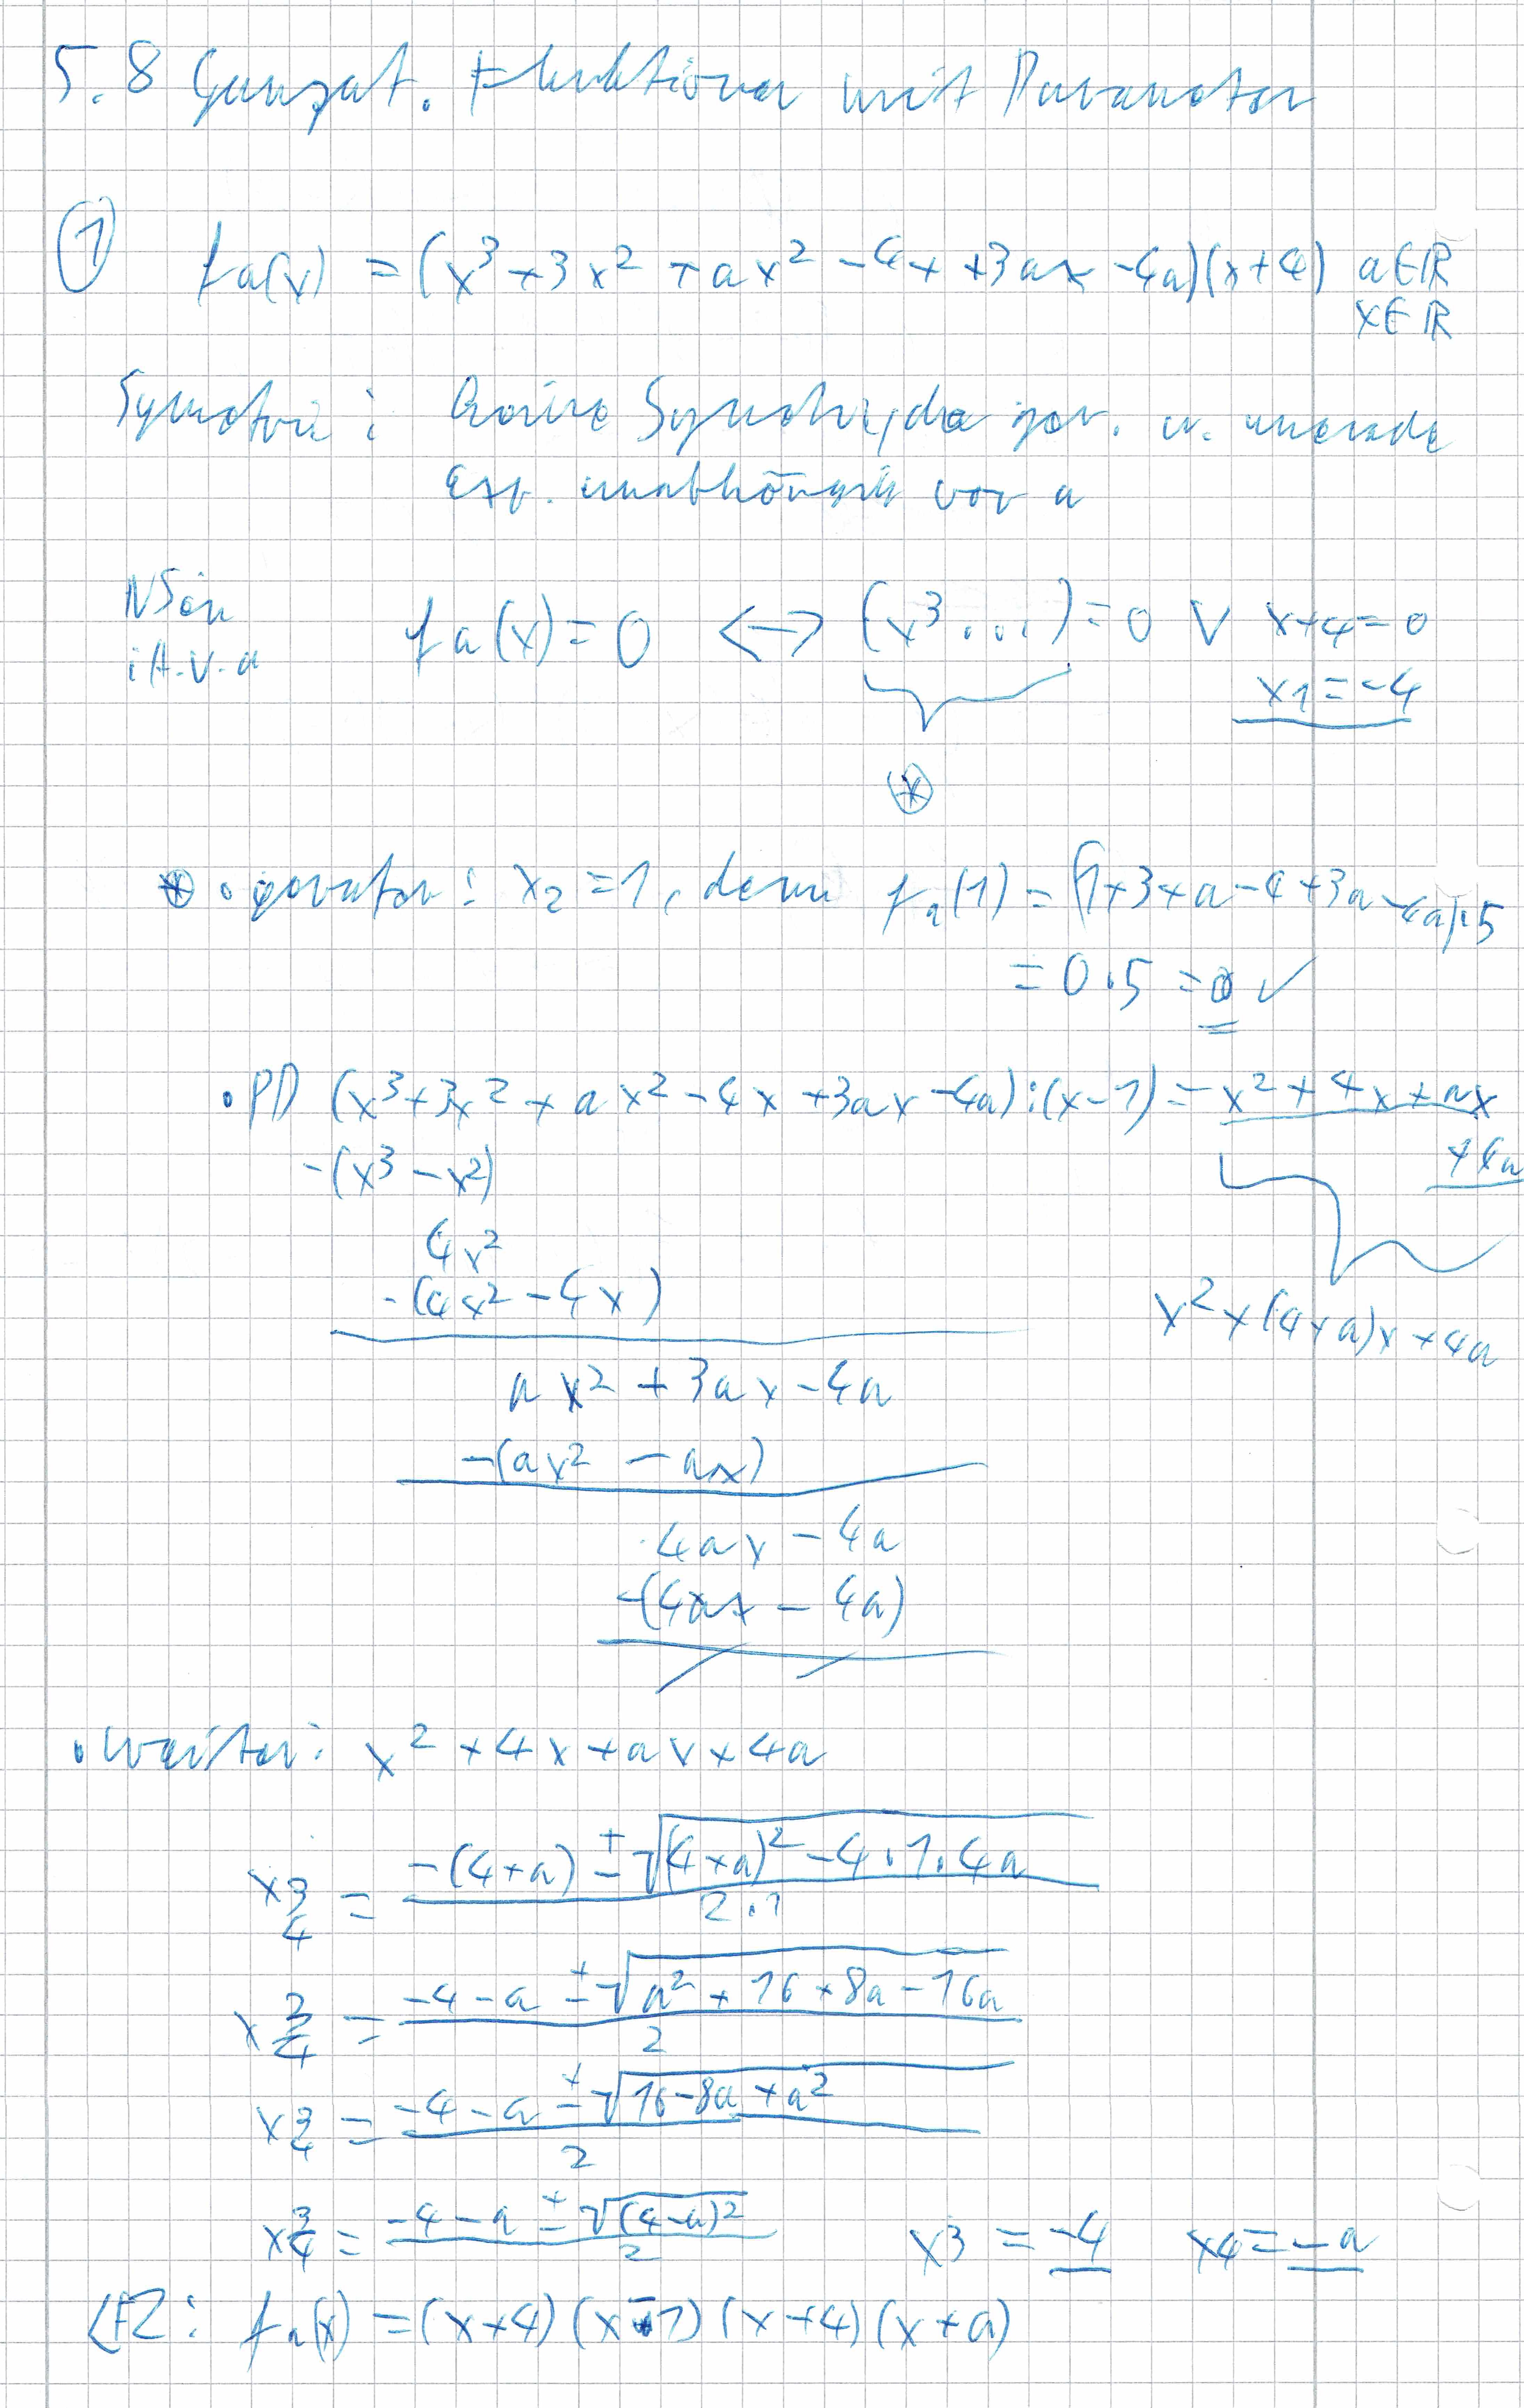 5.8 Ganzrat. Funktionen mit Parameter
① fa(x) = (x³+3x²+ax²-4x+3ax-4a)(x+4) a∈ℝ
x∈ℝ
Symetrie: Keine Symetri, da ger. u. unerade
Exp. unabhängig von a
NSen
i.A.v.a
fa(x)=0 <=> (x³...)=0 ∨ x+4=0
x1=-4
⊛
⊛ • geraten: x₂=1, denn fa(1) = (1+3+a-4+3a-4a)·5
= 0·5 = 0 ✓
• PD (x³+3x²+ax²-4x+3ax-4a):(x-1)= x²+4x+ax
+4a
-(x³-x²)
4x²
-(4x²-4x)
x²+(4+a)x+4a
ax²+3ax-4a
-(ax²-ax)
4ax-4a
-(4ax-4a)
• weiter: x²+4x+ax+4a
x3/4 = (-(4+a) ± √((4+a)²-4·1·4a)) / (2·1)
x3/4 = (-4-a ± √(a²+16+8a-16a)) / 2
x3/4 = (-4-a ± √(16-8a+a²)) / 2
x3/4 = (-4-a ± √((4-a)²)) / 2 x3 = -4 x4 = -a
LFZ: fa(x) = (x+4)(x-1)(x+4)(x+a)